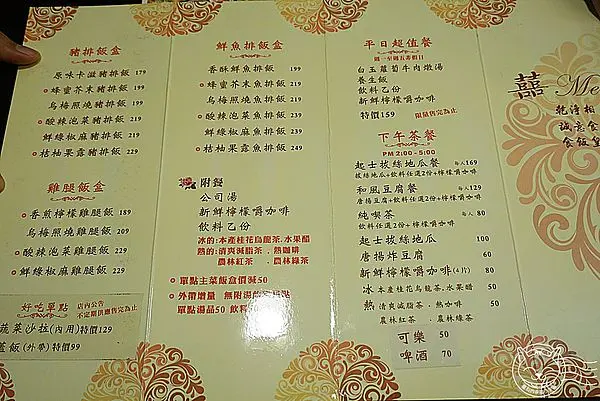 豬排飯盒
原味卡滋豬排飯 179
蜂蜜芥末豬排飯 199
烏梅照燒豬排飯 199
酸辣泡菜豬排飯 219
鮮綠椒麻豬排飯 219
桔柚果露豬排飯 229
雞腿飯盒
香煎檸檬雞腿飯 189
烏梅照燒雞腿飯 209
酸辣泡菜雞腿飯 229
鮮綠椒麻雞腿飯 229
好吃單點
店內公告
不定期供應售完為止
蔬菜沙拉(內用)特價129
蓋飯(外帶)特價99
鮮魚排飯盒
香酥鮮魚排飯 199
蜂蜜芥末魚排飯 219
烏梅照燒魚排飯 219
酸辣泡菜魚排飯 239
鮮綠椒麻魚排飯 239
桔柚果露魚排飯 249
附餐
公司湯
新鮮檸檬嚼咖啡
飲料乙份
冰的:本產桂花烏龍茶.水果醋
熱的:清爽減脂茶.熱咖啡
農林紅茶.農林綠茶
單點主菜飯盒價減50
外帶增量 無附湯
單點湯品50 飲料
平日超值餐
週一至週五非假日
白玉蘿蔔牛肉燉湯
養生飯
飲料乙份
新鮮檸檬嚼咖啡
特價159 限量售完為止
下午茶餐
PM 2:00 - 5:00
起士拔絲地瓜餐 每人169
拔絲地瓜+飲料任選2份+檸檬嚼咖啡
和風豆腐餐 每人129
唐揚豆腐+飲料任選2份+檸檬嚼咖啡
純喫茶 每人 80
飲料任選2份+檸檬嚼咖啡
起士拔絲地瓜 100
唐揚炸豆腐 60
新鮮檸檬嚼咖啡(4片) 80
冰 本產桂花烏龍茶.水果醋 50
熱 清爽減脂茶.熱咖啡 50
農林紅茶.農林綠茶
可樂 50
啤酒 70
囍 Me
乾淨相
誠意食
食飯皇